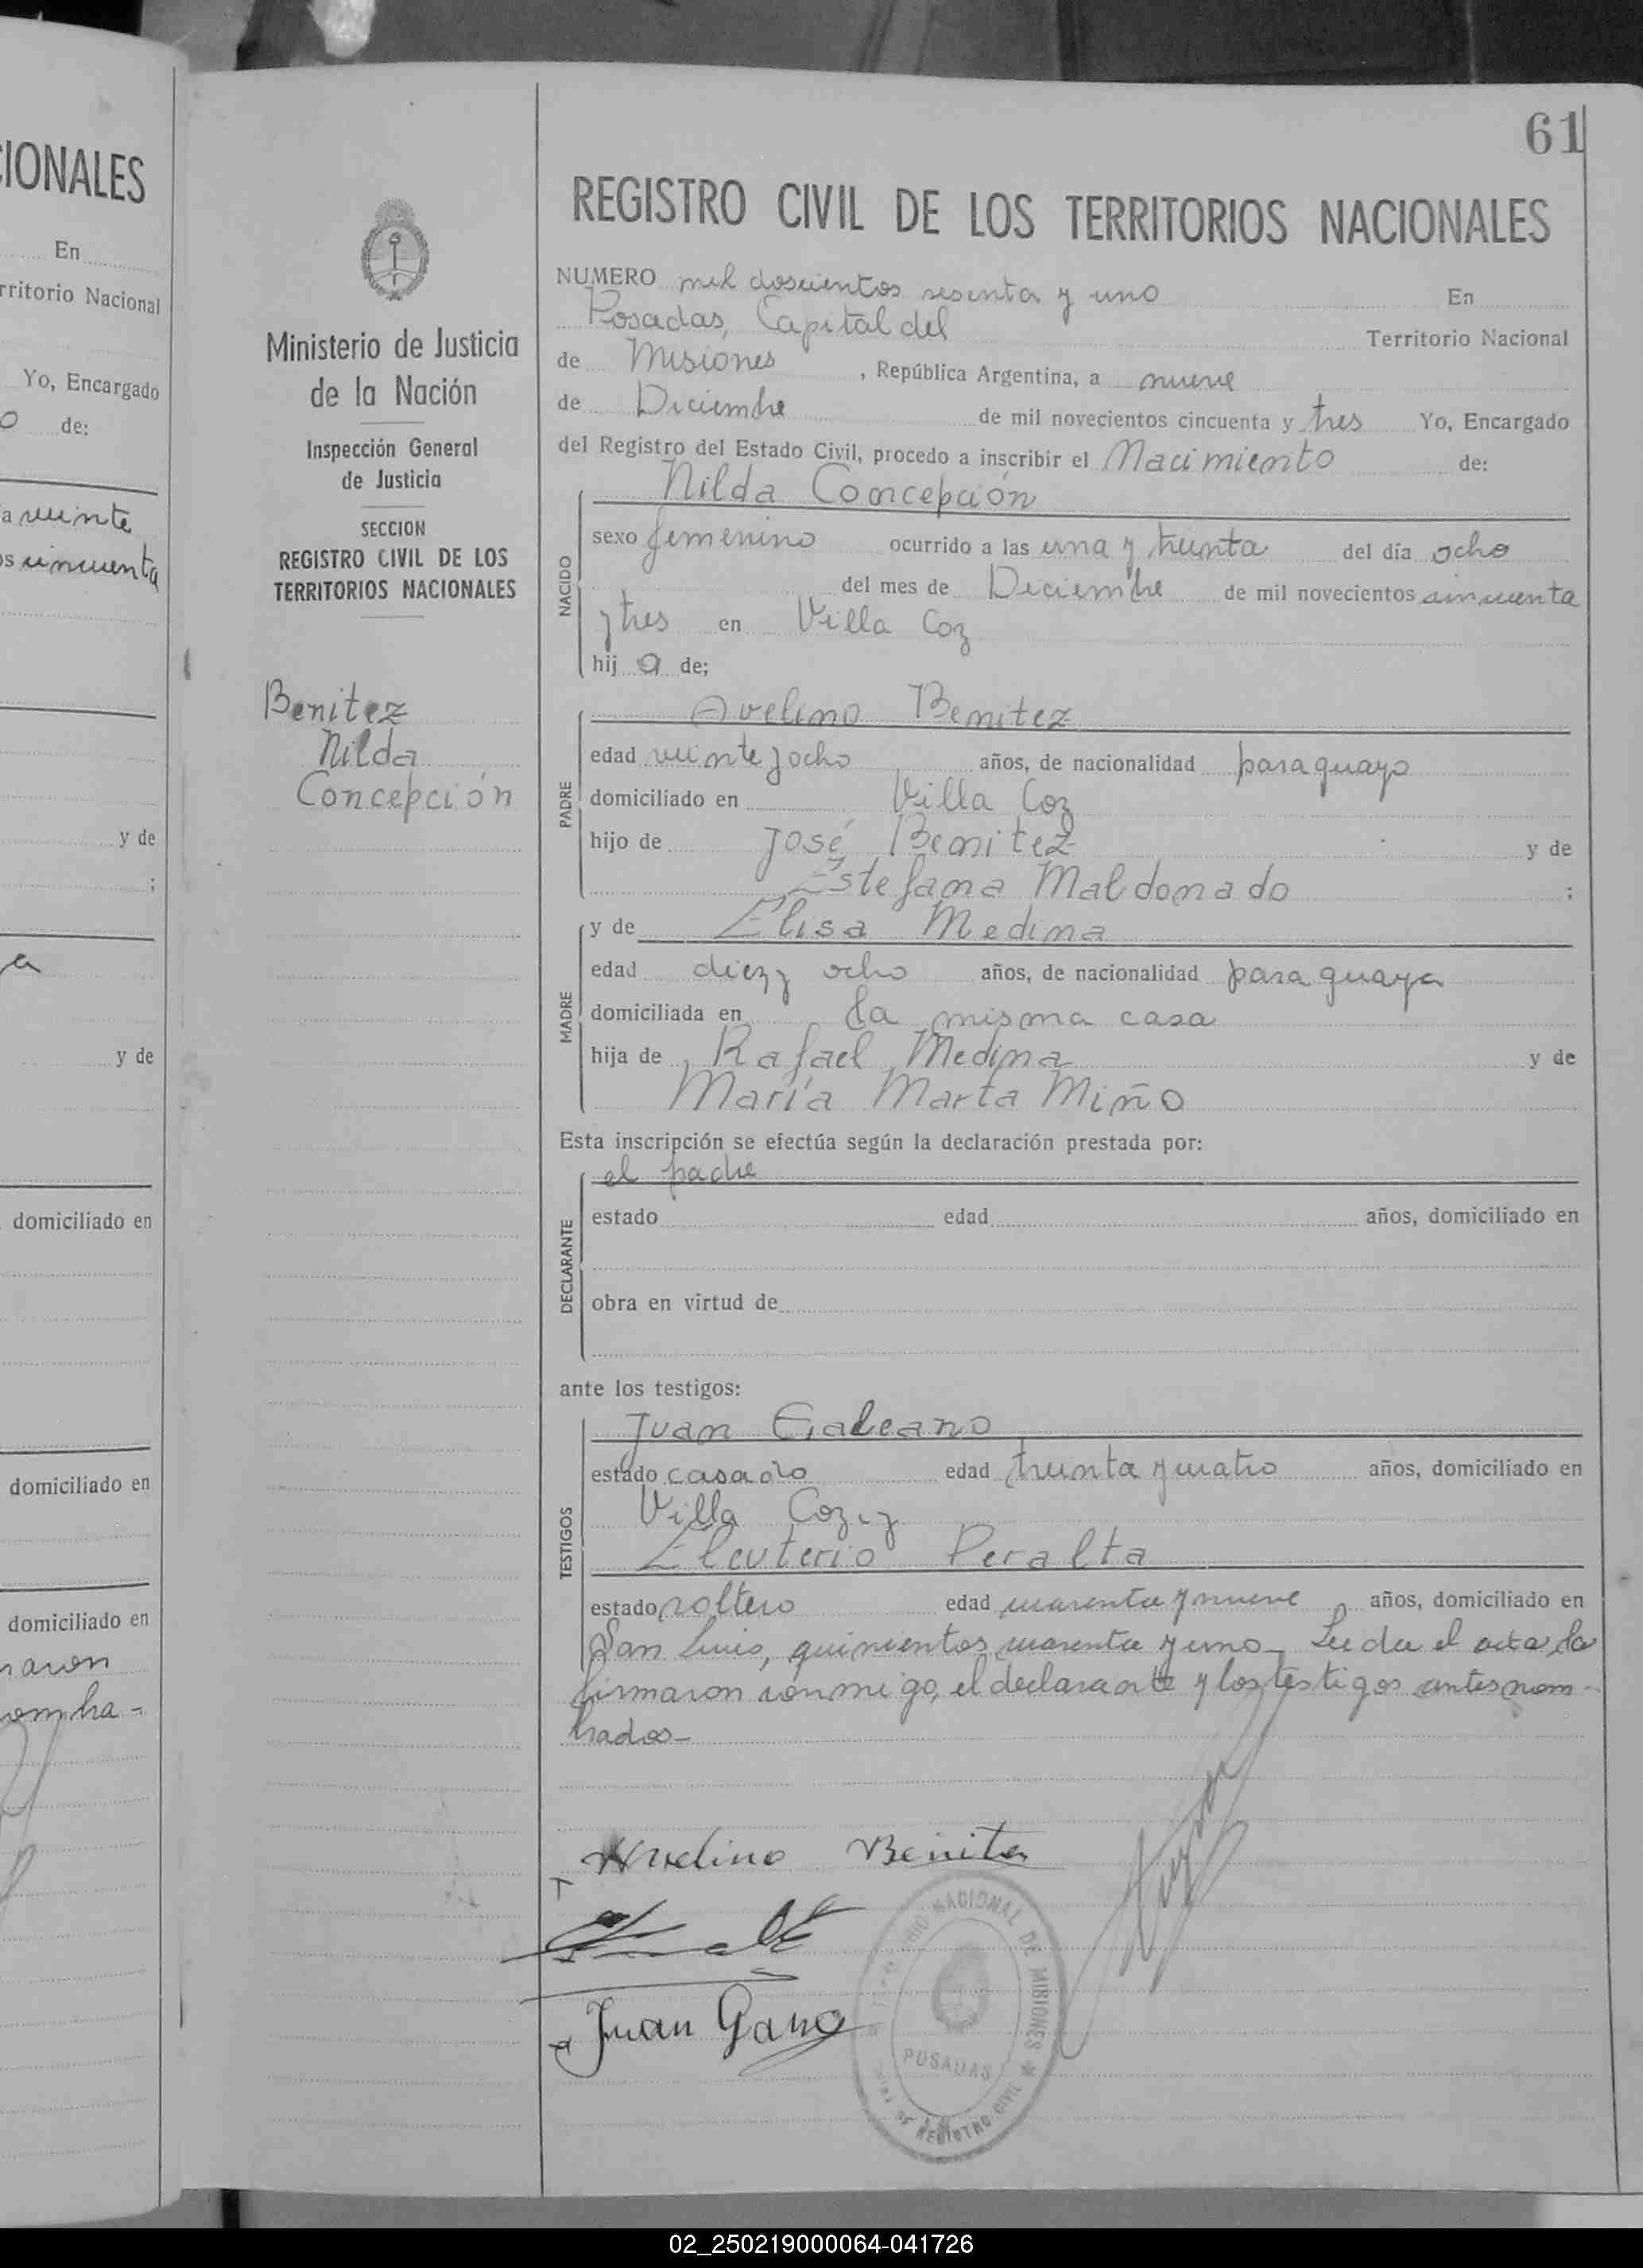 CIONALES
En
rritorio Nacional
Yo, Encargado
o de:
a veinte
os cincuenta
y de
;
a
y de
domiciliado en
domiciliado en
domiciliado en
maron
ombra-
Ministerio de Justicia
de la Nación
Inspección General
de Justicia
SECCION
REGISTRO CIVIL DE LOS
TERRITORIOS NACIONALES
Benitez
Nilda
Concepción
61
REGISTRO CIVIL DE LOS TERRITORIOS NACIONALES
NUMERO mil doscientos sesenta y uno En
Posadas, Capital del Territorio Nacional
de Misiones, República Argentina, a nueve
de Diciembre de mil novecientos cincuenta y tres Yo, Encargado
del Registro del Estado Civil, procedo a inscribir el Nacimiento de:
Nilda Concepción
NACIDO
sexo femenino ocurrido a las una y treinta del día ocho
del mes de Diciembre de mil novecientos cincuenta
y tres en Villa Coz
hij a de;
Avelino Benitez
PADRE
edad veinte y ocho años, de nacionalidad paraguayo
domiciliado en Villa Coz
hijo de José Benitez y de
Estefana Maldonado ;
y de Elisa Medina
MADRE
edad diez y ocho años, de nacionalidad paraguaya
domiciliada en la misma casa
hija de Rafael Medina y de
María Marta Miño
Esta inscripción se efectúa según la declaración prestada por:
el padre
DECLARANTE
estado edad años, domiciliado en
obra en virtud de
ante los testigos:
Juan Galeano
TESTIGOS
estado casado edad treinta y cuatro años, domiciliado en
Villa Coz y
Eleuterio Peralta
estado soltero edad cuarenta y nueve años, domiciliado en
San Luis, quinientos cuarenta y uno- Leida el acta la
firmaron conmigo, el declarante y los testigos antes nom-
brados-
Avelino Benitez
Juan Gano
NACIONAL DE MISIONES
POSADAS
DE REGISTRO CIVIL
02_250219000064-041726